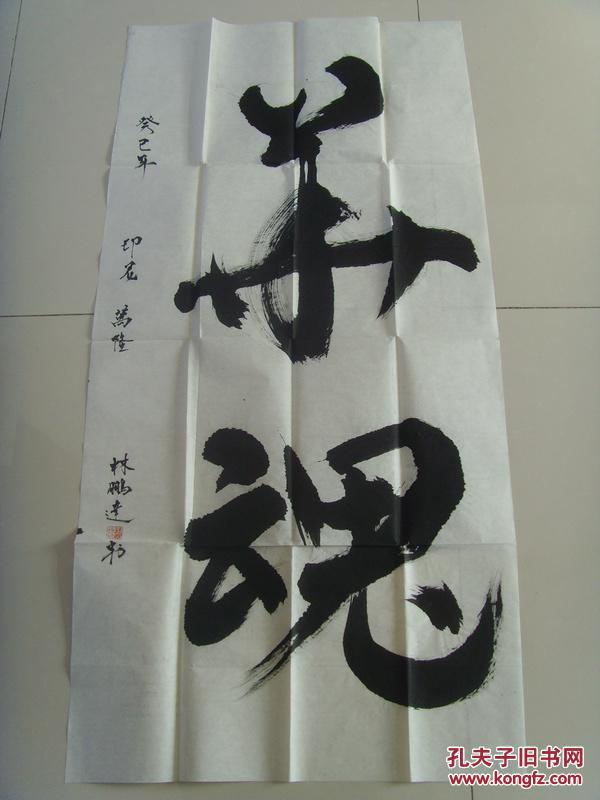 华魂
癸巳年
印尼 萬隆
林鹏達
孔夫子旧书网
www.kongfz.com